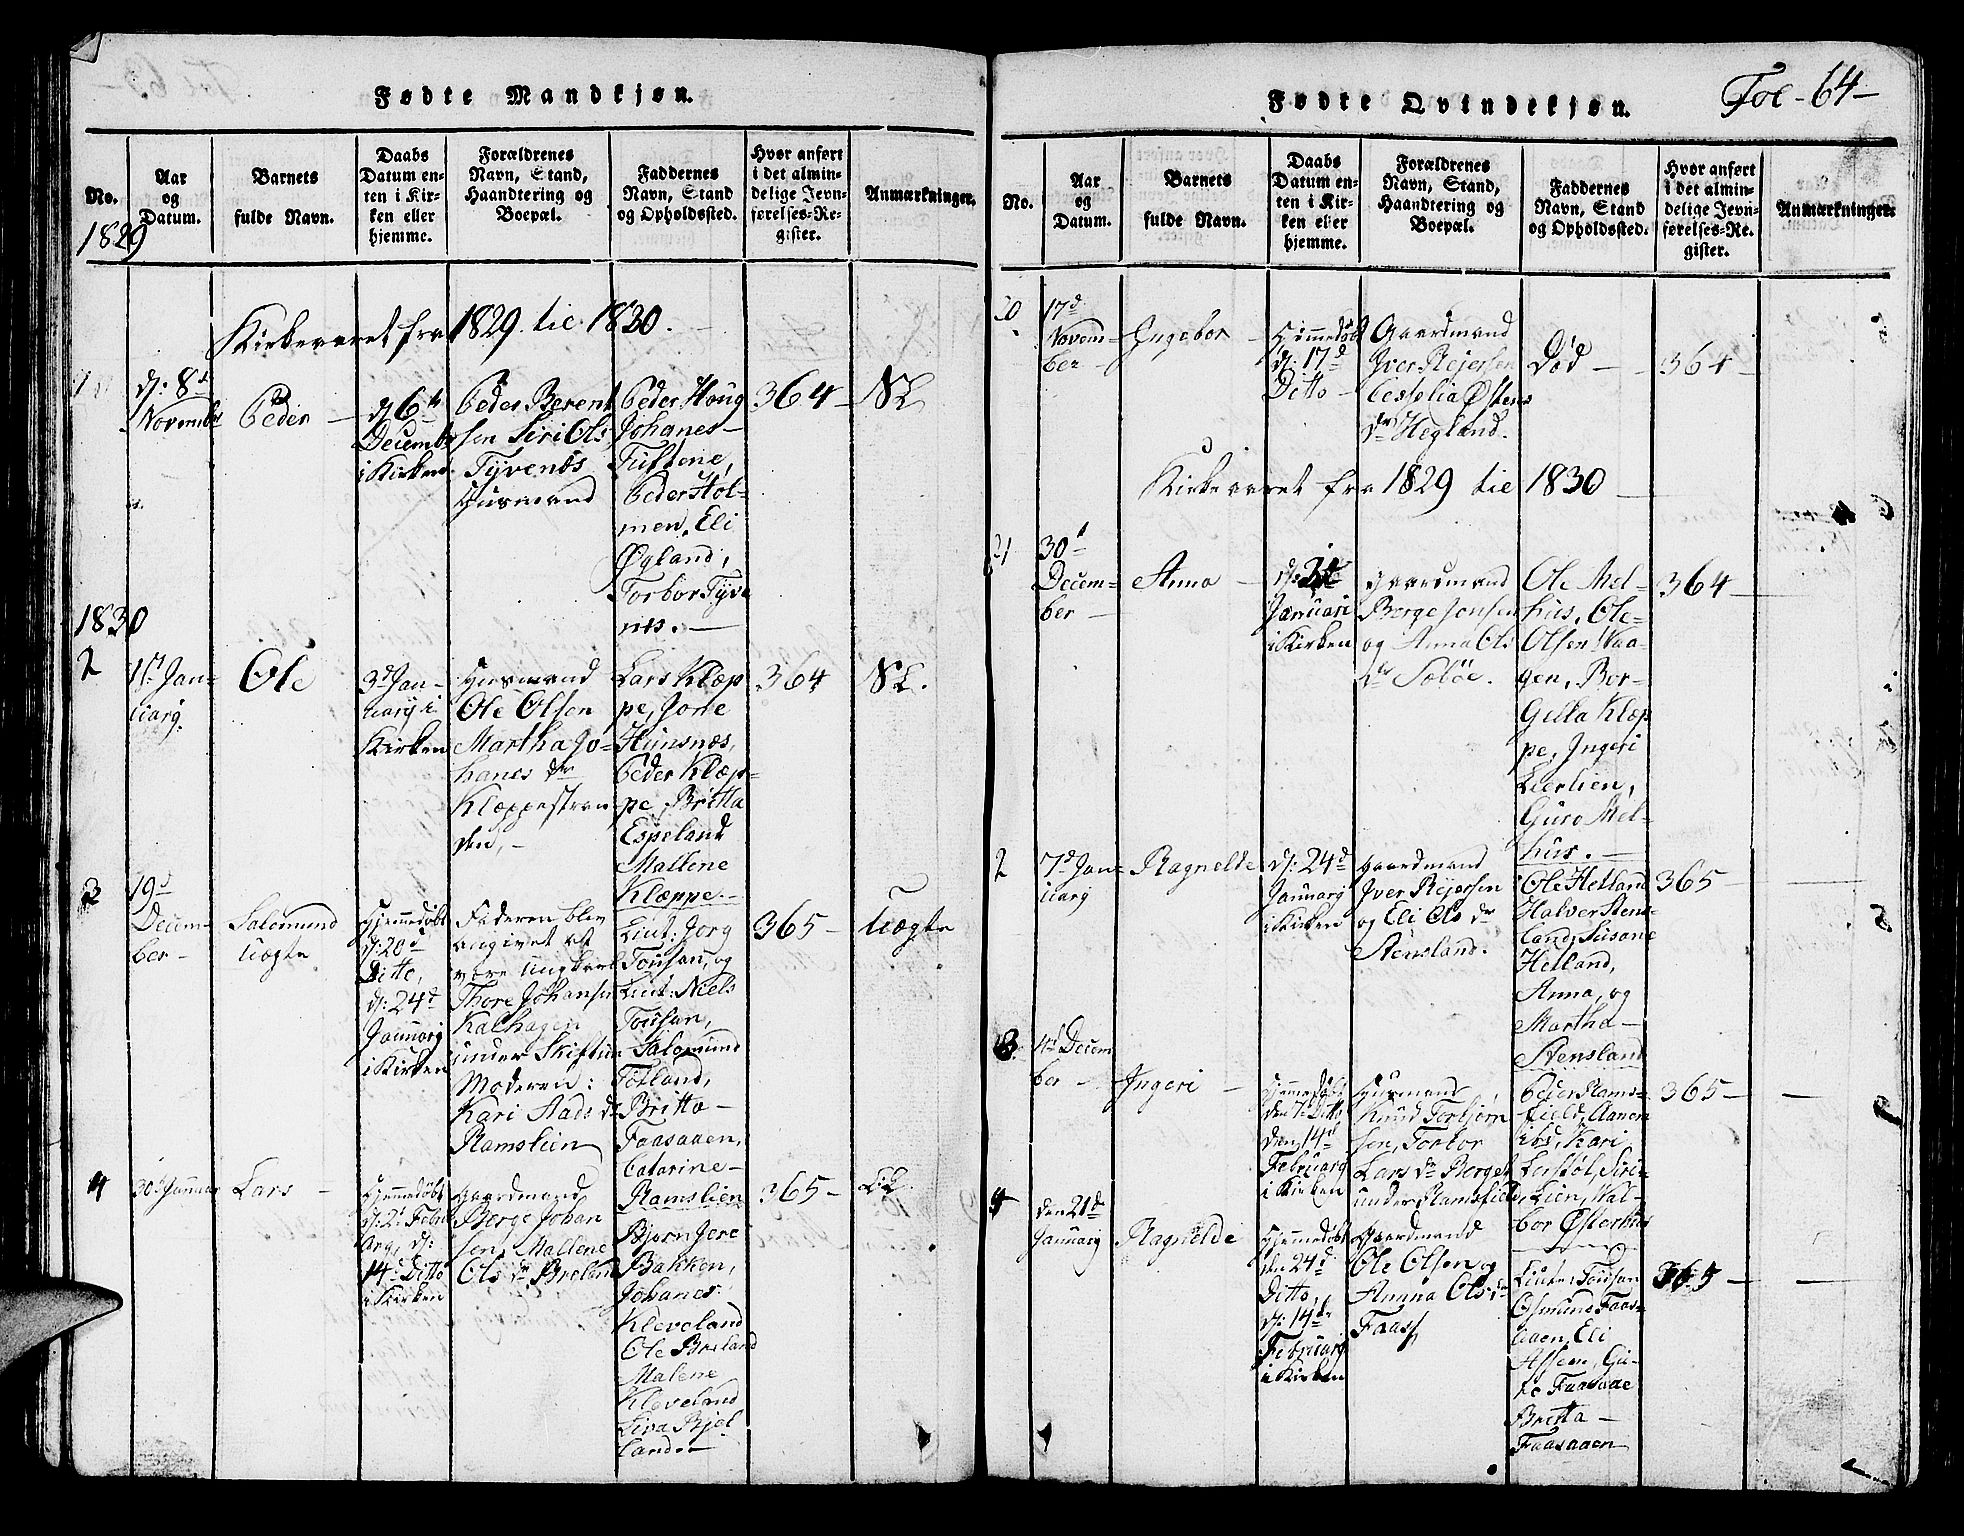 Fødte Mandkjøn.
No.
Aar
og
Datum.
Barnets
fulde Navn.
Daabs
Datum en-
ten i Kir-
ken eller
hjemme.
Forældrenes
Navn, Stand,
Haandtering og
Boepæl.
Faddernes
Navn, Stand
og Opholdssted.
Hvor anført
i det almin-
delige Jevn-
førelses-Re-
gister.
Anmærkninger.
1829
Kirkeaaret fra 1829 til 1830.
1
d: 8d
November
Peder
d 6te
Decemb
i Kirken
Peder Berent
sen Siri Ols
Tyvenæs
Huusmand
Peder Houg
Johanes
Tuftene,
Peder Hol-
men, Eli
Øgland,
Torbor Tyve
næs.
364
1830
2
1st Jan-
uary.
Ole
3d Jan-
uary i
Kirken
Huusmand
Ole Olsen
Martha Jo-
hanes dr
Klæppestran
den,
Lars Klæp
pe, Jone
Hunsnæs,
Peder Klæp-
pe, Britta
Espeland
Mallene
Klæppe.
364
3
19d
Decem-
ber
Salomund
Uægte
Hjemmedøbt
d: 20d
Ditto,
d: 24d
Januarg
i Kirken
Faderen blev
angivet at
være Ungkarl
Thore Johansen
Kalhagen
under Skiftun
Moderen:
Kari Aads dr
Ramslien
Lieut: Jorg
Tousan, og
Lieut: Niels
Tousan,
Salomund
Totland,
Britta
Faasaaen,
Catarine
Ramslien
365
Uægte
4
30d Januar
Lars
Hjemmedøbt
d: 2d Febr
Arg, d:
14d Ditto
i Kirken
Gaardmand
Berge Johan
sen, Mallene
Ols dr Breland
Bjørn Jere
Bakken,
Johanes
Kleveland
Ole Breland
Malene
Kleveland
Siva Bjel
land.
365
Fødte Qvindekjøn.
Fol-64-
No.
Aar
og
Datum.
Barnets
fulde Navn.
Daabs
Datum en-
ten i Kir-
ken eller
hjemme.
Forældrenes
Navn, Stand,
Haandtering og
Boepæl.
Faddernes
Navn, Stand
og Opholdssted.
Hvor anført
i det almin-
delige Jevn-
førelses-Re-
gister.
Anmærkninger.
20
17d
Novem-
ber
Ingebor
Hjemmedøbt
d: 17d
Ditto
Gaardmand
Iver Rejersen
Østens
dr Hegland.
Død
364
Kirkeaaret fra 1829 til 1830
30d
Decem-
ber
Anna
Januari
i Kirken
Gaardmand
Berge Jonsen
og Anna Ols
dr
Ole Mel-
hus, Ole
Olsen Vaa-
gen, Bor-
Gella Klæp
pe, Ingeri
Lierlien,
Guro Mel-
hus.
364
2
7d Jan-
uarg
Ragnelde
d: 24d
Januarg
i Kirken
Gaardmand
Iver Rejersen
og Eli Ols dr
Stensland.
Ole Helland
Halver Stens-
land, Susane
Helland,
Anna, og
Martha
Stensland
365
3
4d Decem
ber
Ingeri
Hjemmedøbt
den 7d Ditto
den 14d
Februarg
i Kirken
Huusmand,
Knud Torbjørn
sen, Torbor
Lars dr Berget
under Ramsfield
Peder Rams-
field, Aanen
ibd, Kari
Lustøl, Siri
Lien, Val-
bor Østerhus
365
4
den 21d
Januarg
Ragnelde
Hjemmedøbt
den 24d
Ditto,
d: 14de
Februarg
i Kirken
Gaardmand
Ole Olsen og
Anna Ols dr
Faass
Lieut: Tousan
Osmund Faas-
aaen, Eli
Assem, Gu-
ro Faasaae
Britta
Faasaaen
365